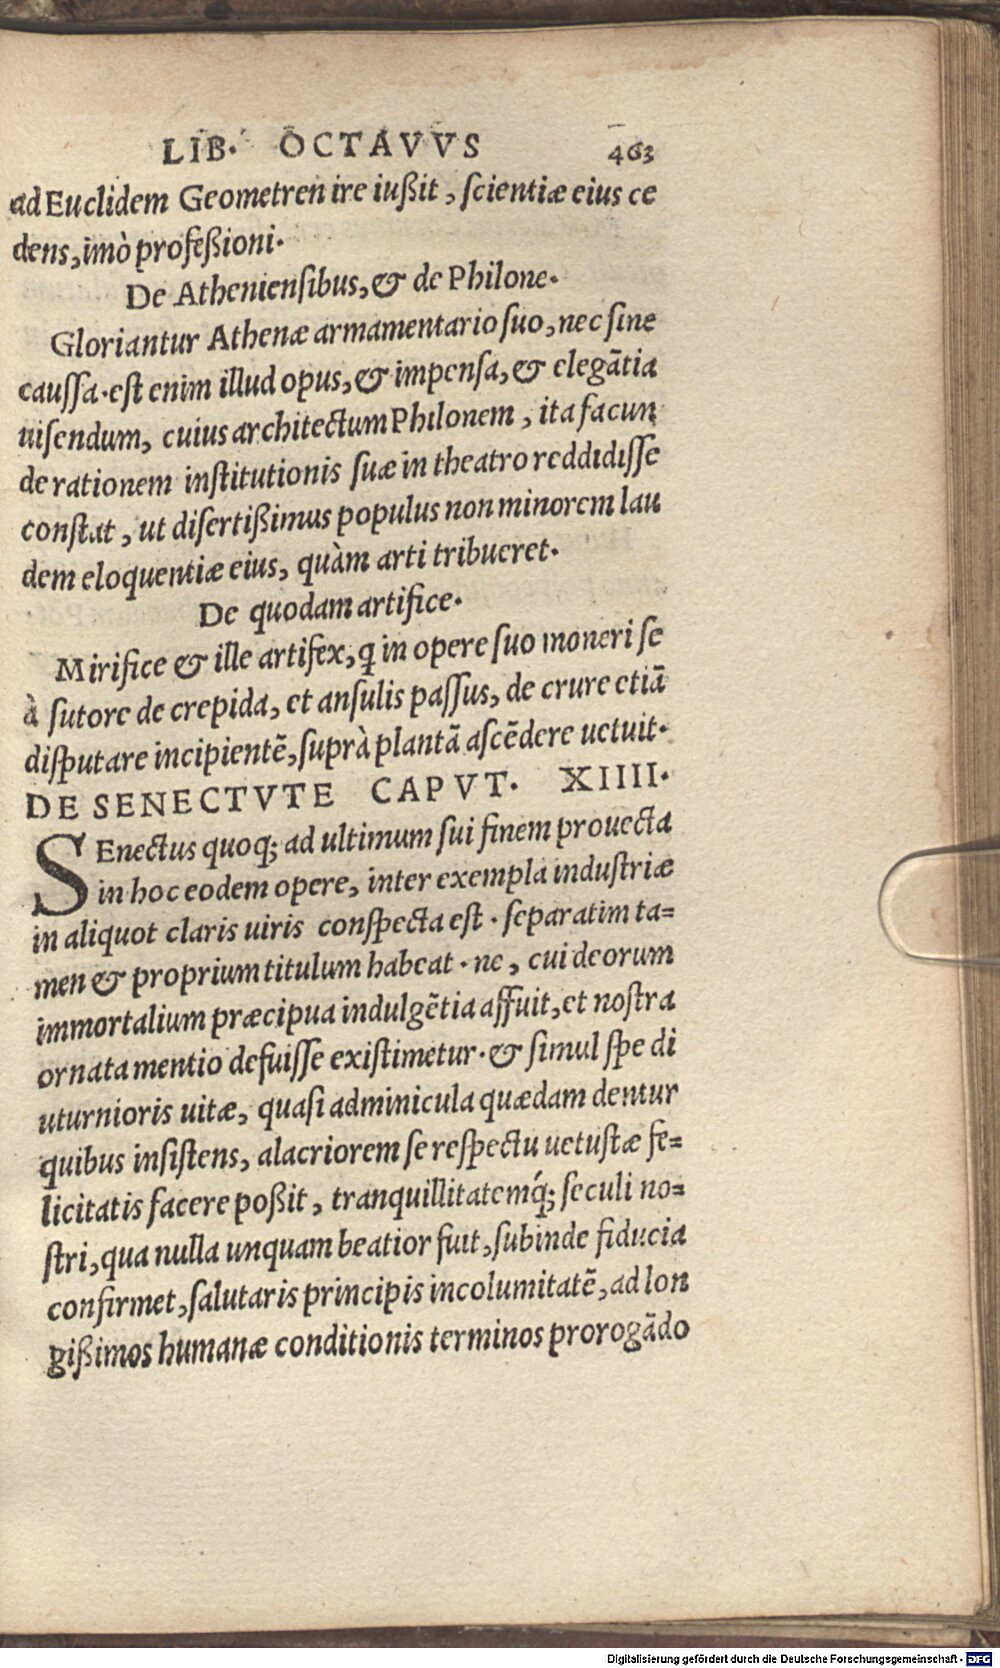 LIB. OCTAVVS 463
ad Euclidem Geometren ire iußit, scientiæ eius ce
dens, imò profeßioni.
De Atheniensibus, & de Philone.
Gloriantur Athenæ armamentario suo, nec sine
caussa. est enim illud opus, & impensa, & elegātia
uisendum, cuius architectum Philonem, ita facun
de rationem institutionis suæ in theatro reddidisse
constat, ut disertißimus populus non minorem lau
dem eloquentiæ eius, quàm arti tribueret.
De quodam artifice.
Mirifice & ille artifex, ꝗ in opere suo moneri se
à sutore de crepida, et ansulis passus, de crure etiā
disputare incipientē, suprà plantā ascēdere uetuit.
DE SENECTVTE CAPVT. XIIII.
SEnectus quoq; ad ultimum sui finem prouecta
in hoc eodem opere, inter exempla industriæ
in aliquot claris uiris conspecta est. separatim ta=
men & proprium titulum habeat. ne, cui deorum
immortalium præcipua indulgētia affuit, et nostra
ornata mentio defuisse existimetur. & simul spe di
uturnioris uitæ, quasi adminicula quædam dentur
quibus insistens, alacriorem se respectu uetustæ fe=
licitatis facere poßit, tranquillitatemq́; seculi no=
stri, qua nulla unquam beatior fuit, subinde fiducia
confirmet, salutaris principis incolumitatē, ad lon
gißimos humanæ conditionis terminos prorogādo
Digitalisierung gefördert durch die Deutsche Forschungsgemeinschaft - DFG